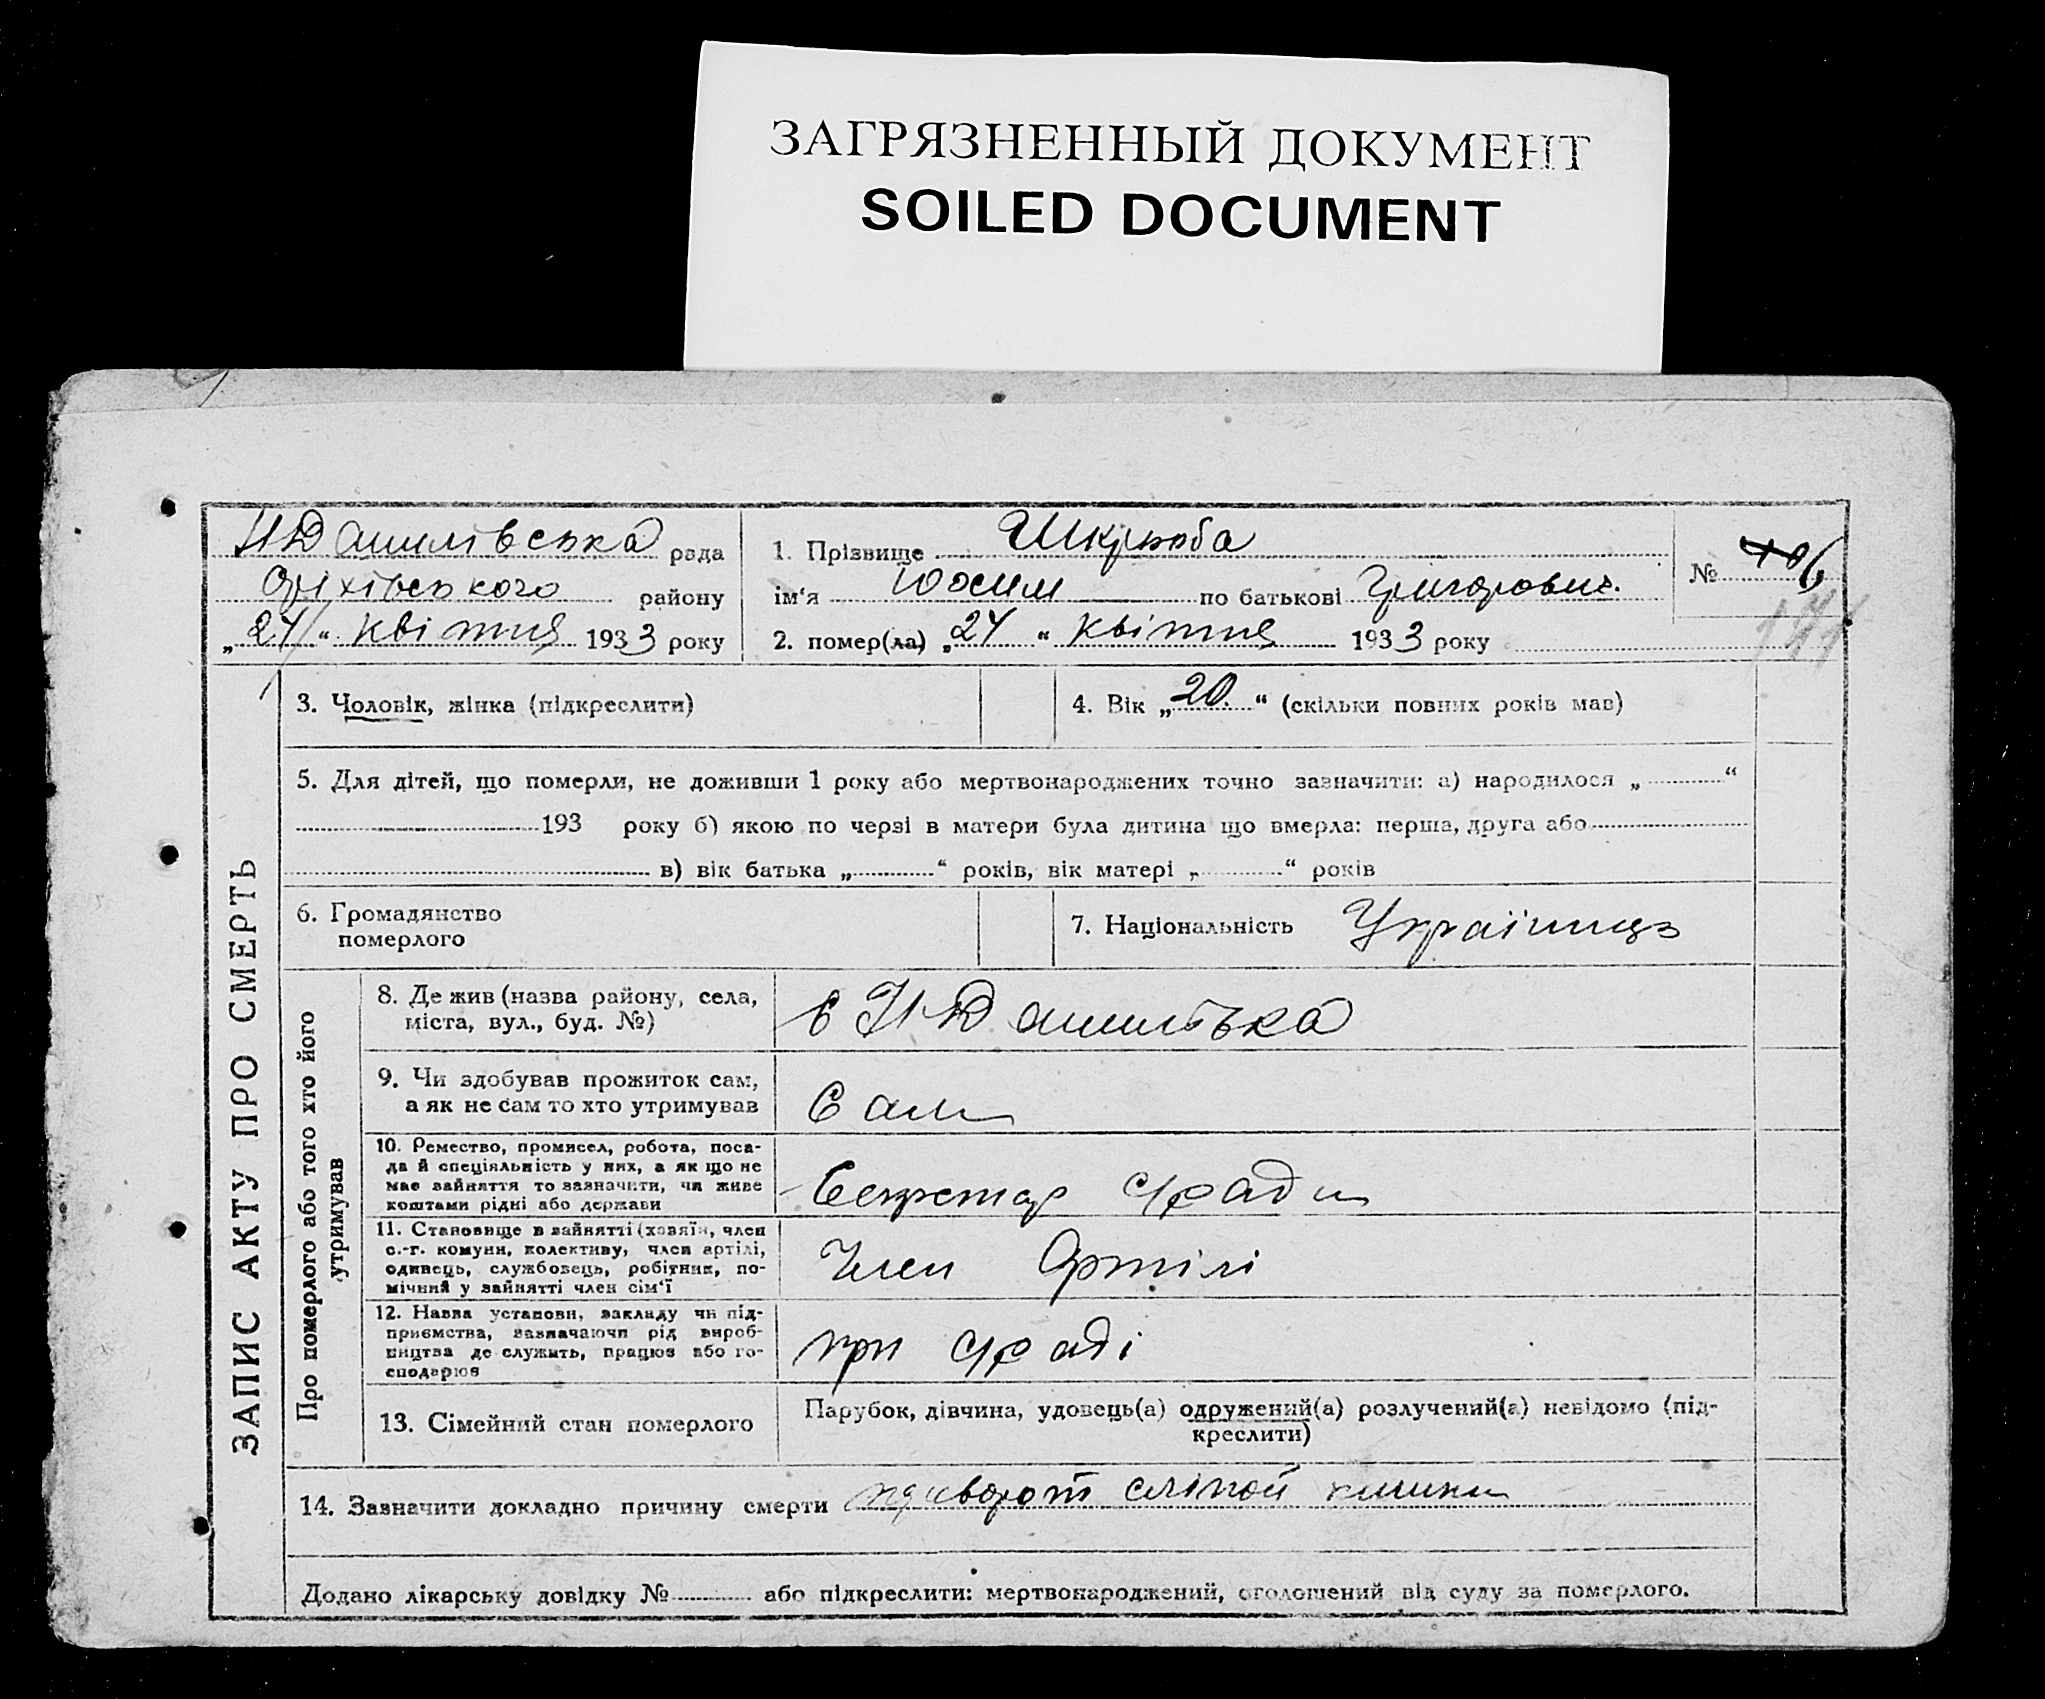 ЗАГРЯЗНЕННЫЙ ДОКУМЕНТ
SOILED DOCUMENT
рада
Оріхівського району
„24“ квітня 1933 року
1. Прізвище Шкрьоба
ім‘я Юхим по батькові Григорович.
2. помер(ла) „24“ квітня 1933 року
№
ЗАПИС АКТУ ПРО СМЕРТЬ
3. Чоловік, жінка (підкреслити)
4. Вік „20.“ (скільки повних років мав)
5. Для дітей, що померли, не доживши 1 року або мертвонароджених точно зазначити: а) народилося „ “
193 року б) якою по черзі в матери була дитина що вмерла: перша, друга або
в) вік батька „ “ років, вік матері „ “ років
6. Громадянство
померлого
7. Національність Українець
Про померлого або того хто його
утримував
8. Де жив (назва району, села,
міста, вул., буд. №)
9. Чи здобував прожиток сам,
а як не сам то хто утримував
Сам
10. Ремество, промисел, робота, поса-
да й спеціяльність у них, а як що не
має зайняття то зазначити, чи живе
коштами рідні або держави
Секретар с/ради
11. Становище в зайнятті (хазяїн, член
с.-г. комуни, колективу, член артілі,
одинець, службовець, робітник, по-
мічний у зайнятті член сім‘ї
Член Артілі
12. Назва установи, закладу чи під-
приємства, зазначаючи рід вироб-
ництва де служить, працює або го-
сподарює
при с/раді
13. Сімейний стан померлого
Парубок, дівчина, удовець(а) одружений(а) розлучений(а) невідомо (під-
креслити)
14. Зазначити докладно причину смерти заворот сліпой кишки
Додано лікарську довідку № або підкреслити: мертвонароджений, оголошений від суду за померлого.